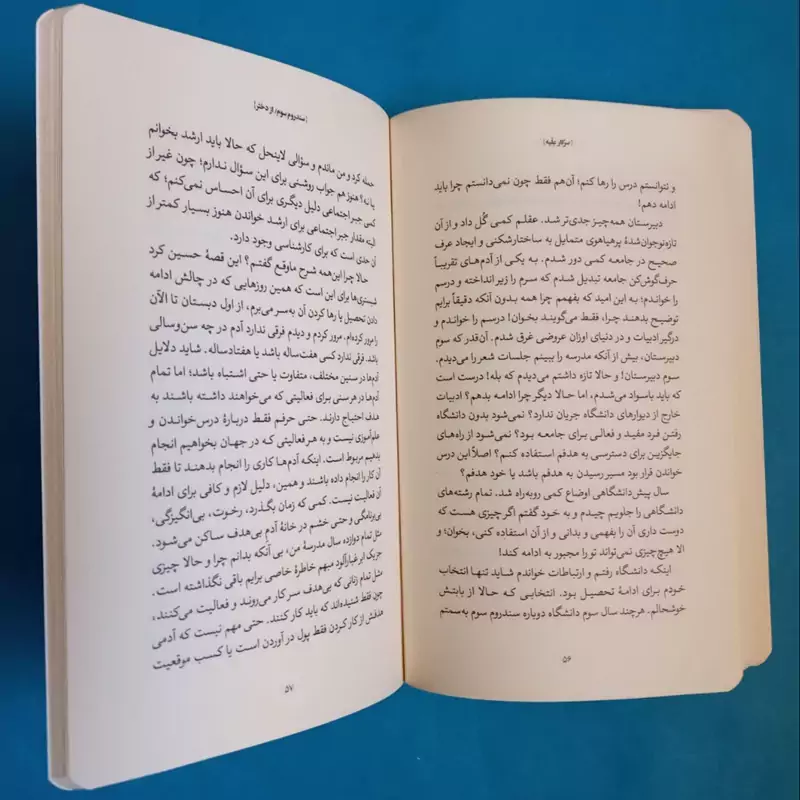 | سرکار علیه |
و نتوانستم درس را رها کنم؛ آن‌هم فقط چون نمی‌دانستم چرا باید
ادامه دهم!
دبیرستان همه‌چیز جدی‌تر شد. عقلم کمی گُل داد و از آن
تازه‌نوجوان‌شدهٔ پرهیاهوی متمایل به ساختارشکنی و ایجاد عرف
صحیح در جامعه کمی دور شدم. به یکی از آدم‌های تقریباً
حرف‌گوش‌کن جامعه تبدیل شدم که سرم را زیر انداخته و درسم
را خواندم؛ به این امید که بفهمم چرا همه بدون آنکه دقیقاً برایم
توضیح بدهند چرا، فقط می‌گویند بخوان! درسم را خواندم و
درگیر ادبیات و در دنیای اوزان عروضی غرق شدم. آن‌قدر که سوم
دبیرستان، بیش از آنکه مدرسه را ببینم جلسات شعر را می‌دیدم.
سوم دبیرستان! و حالا تازه داشتم می‌دیدم که بله! درست است
که باید باسواد می‌شدم، اما حالا دیگر چرا ادامه بدهم؟ ادبیات
خارج از دیوارهای دانشگاه جریان ندارد؟ نمی‌شود بدون دانشگاه
رفتن فرد مفید و فعالی برای جامعه بود؟ نمی‌شود از راه‌های
جایگزین برای دسترسی به هدفم استفاده کنم؟ اصلاً این درس
خواندن قرار بود مسیر رسیدن به هدفم باشد یا خود هدفم؟
سال پیش‌دانشگاهی اوضاع کمی روبه‌راه شد. تمام رشته‌های
دانشگاهی را جلویم چیدم و به خود گفتم اگر چیزی هست که
دوست داری آن را بفهمی و بدانی و از آن استفاده کنی، بخوان؛ و
الا هیچ‌چیزی نمی‌تواند تو را مجبور به ادامه کند!
اینکه دانشگاه رفتم و ارتباطات خواندم شاید تنها انتخاب
خودم برای ادامهٔ تحصیل بود. انتخابی که حالا از بابتش
خوشحالم. هرچند سال سوم دانشگاه دوباره سندروم سوم به‌سمتم
۵۶
| سندروم سوم، از دختر |
حمله کرد و من ماندم و سؤالی لاینحل که حالا باید ارشد بخوانم
یا نه؟ هنوز هم جواب روشنی برای این سؤال ندارم؛ چون غیر از
کمی جبر اجتماعی دلیل دیگری برای آن احساس نمی‌کنم؛ که
البته مقدار جبر اجتماعی برای ارشد خواندن هنوز بسیار کمتر از
آن حدی است که برای کارشناسی وجود دارد.
حالا چرا این‌همه شرح ماوقع گفتم؟ این قصهٔ حسین کرد
شبستری‌ها برای این است که همین روزهایی که در چالش ادامه
دادن تحصیل یا رها کردن آن به‌سر می‌برم، از اول دبستان تا الآن
را مرور کرده‌ام. مرور کردم و دیدم فرقی ندارد آدم در چه سن‌وسالی
باشد. فرقی ندارد کسی هفت‌ساله باشد یا هفتادساله. شاید دلایل
آدم‌ها در سنین مختلف، متفاوت یا حتی اشتباه باشد؛ اما تمام
آدم‌ها در هر سنی برای فعالیتی که می‌خواهند داشته باشند به
هدف احتیاج دارند. حتی حرفم فقط دربارهٔ درس‌خواندن و
علم‌آموزی نیست و به هر فعالیتی که در جهان بخواهیم انجام
بدهیم مربوط است. اینکه آدم‌ها کاری را انجام بدهند تا فقط
آن کار را انجام داده باشند و همین، دلیل لازم و کافی برای ادامهٔ
آن فعالیت نیست. کمی که زمان بگذرد، رخوت، بی‌انگیزگی،
بی‌برنامگی و حتی خشم در خانهٔ آدمِ بی‌هدف ساکن می‌شود.
مثل تمام دوازده سال مدرسهٔ من، بی آنکه بدانم چرا و حالا چیزی
جز یک ابر غبارآلود مبهم خاطرهٔ خاصی برایم باقی نگذاشته است.
مثل تمام زنانی که بی‌هدف سر کار می‌روند و فعالیت می‌کنند،
چون فقط شنیده‌اند که باید کار کنند. حتی مهم نیست که آدمی
هدفش از کار کردن فقط پول در آوردن است یا کسب موقعیت
۵۷